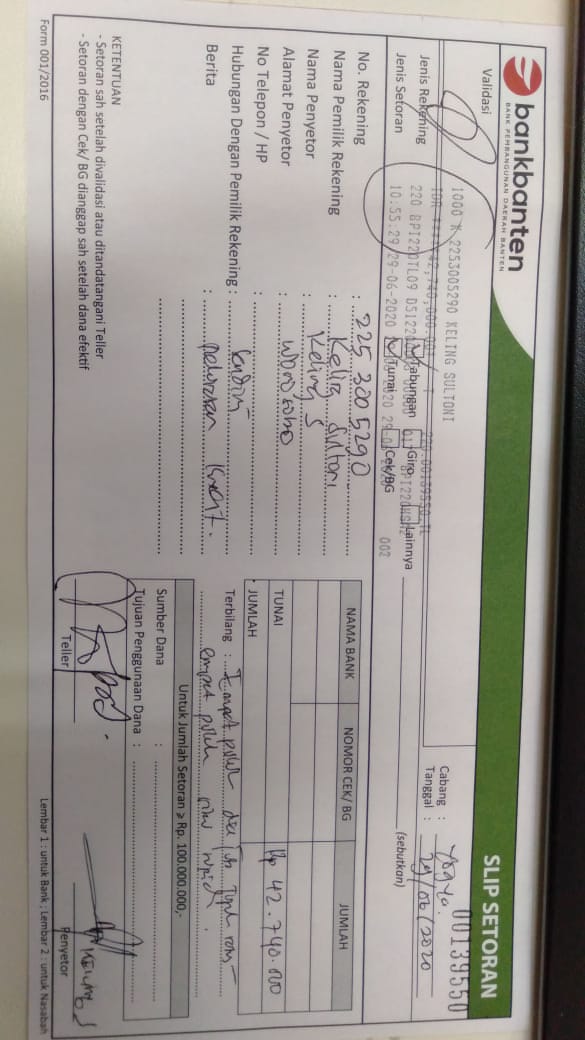 bankbanten
BANK PEMBANGUNAN DAERAH BANTEN
SLIP SETORAN
00139550
Validasi
1000 K 2253005290 KELING SULTONI
10:55:29 29-06-2020
002
Cabang : Yogya
Tanggal : 29/06/2020
Jenis Rekening
Tabungan Giro Lainnya
(sebutkan)
Jenis Setoran
Tunai Cek/BG
No. Rekening : 225 300 5290
Nama Pemilik Rekening : Keling Sultoni
Nama Penyetor : Keling S
Alamat Penyetor : Wonosobo
No Telepon / HP :
Hubungan Dengan Pemilik Rekening : Sendiri
Berita : pelunasan kredit.
NAMA BANK NOMOR CEK/ BG JUMLAH
TUNAI Rp 42.740.000
JUMLAH
Terbilang : Empat puluh dua juta tujuh ratus
empat puluh ribu rupiah.
Untuk Jumlah Setoran ≥ Rp. 100.000.000,-
Sumber Dana :
Tujuan Penggunaan Dana :
Teller
KELING S
Penyetor
KETENTUAN
- Setoran sah setelah divalidasi atau ditandatangani Teller
- Setoran dengan Cek/ BG dianggap sah setelah dana efektif
Form 001/2016
Lembar 1 : untuk Bank ; Lembar 2 : untuk Nasabah